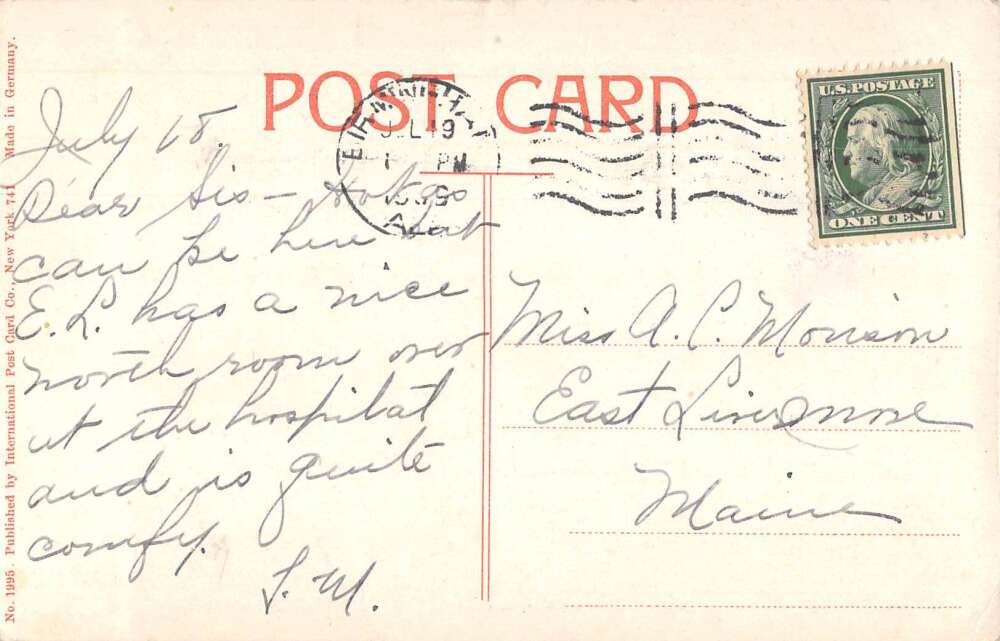 No. 1995. Published by International Post Card Co., New York 741 Made in Germany.
POST CARD
U.S. POSTAGE
ONE CENT
JUL 19
PM
ALA
July 18.
Dear Sis – Hot as
can be here but
E. L. has a nice
north room over
at the hospital
and is quite
comfy.
L. M.
Miss A. C. Morison
East Livermore
Maine